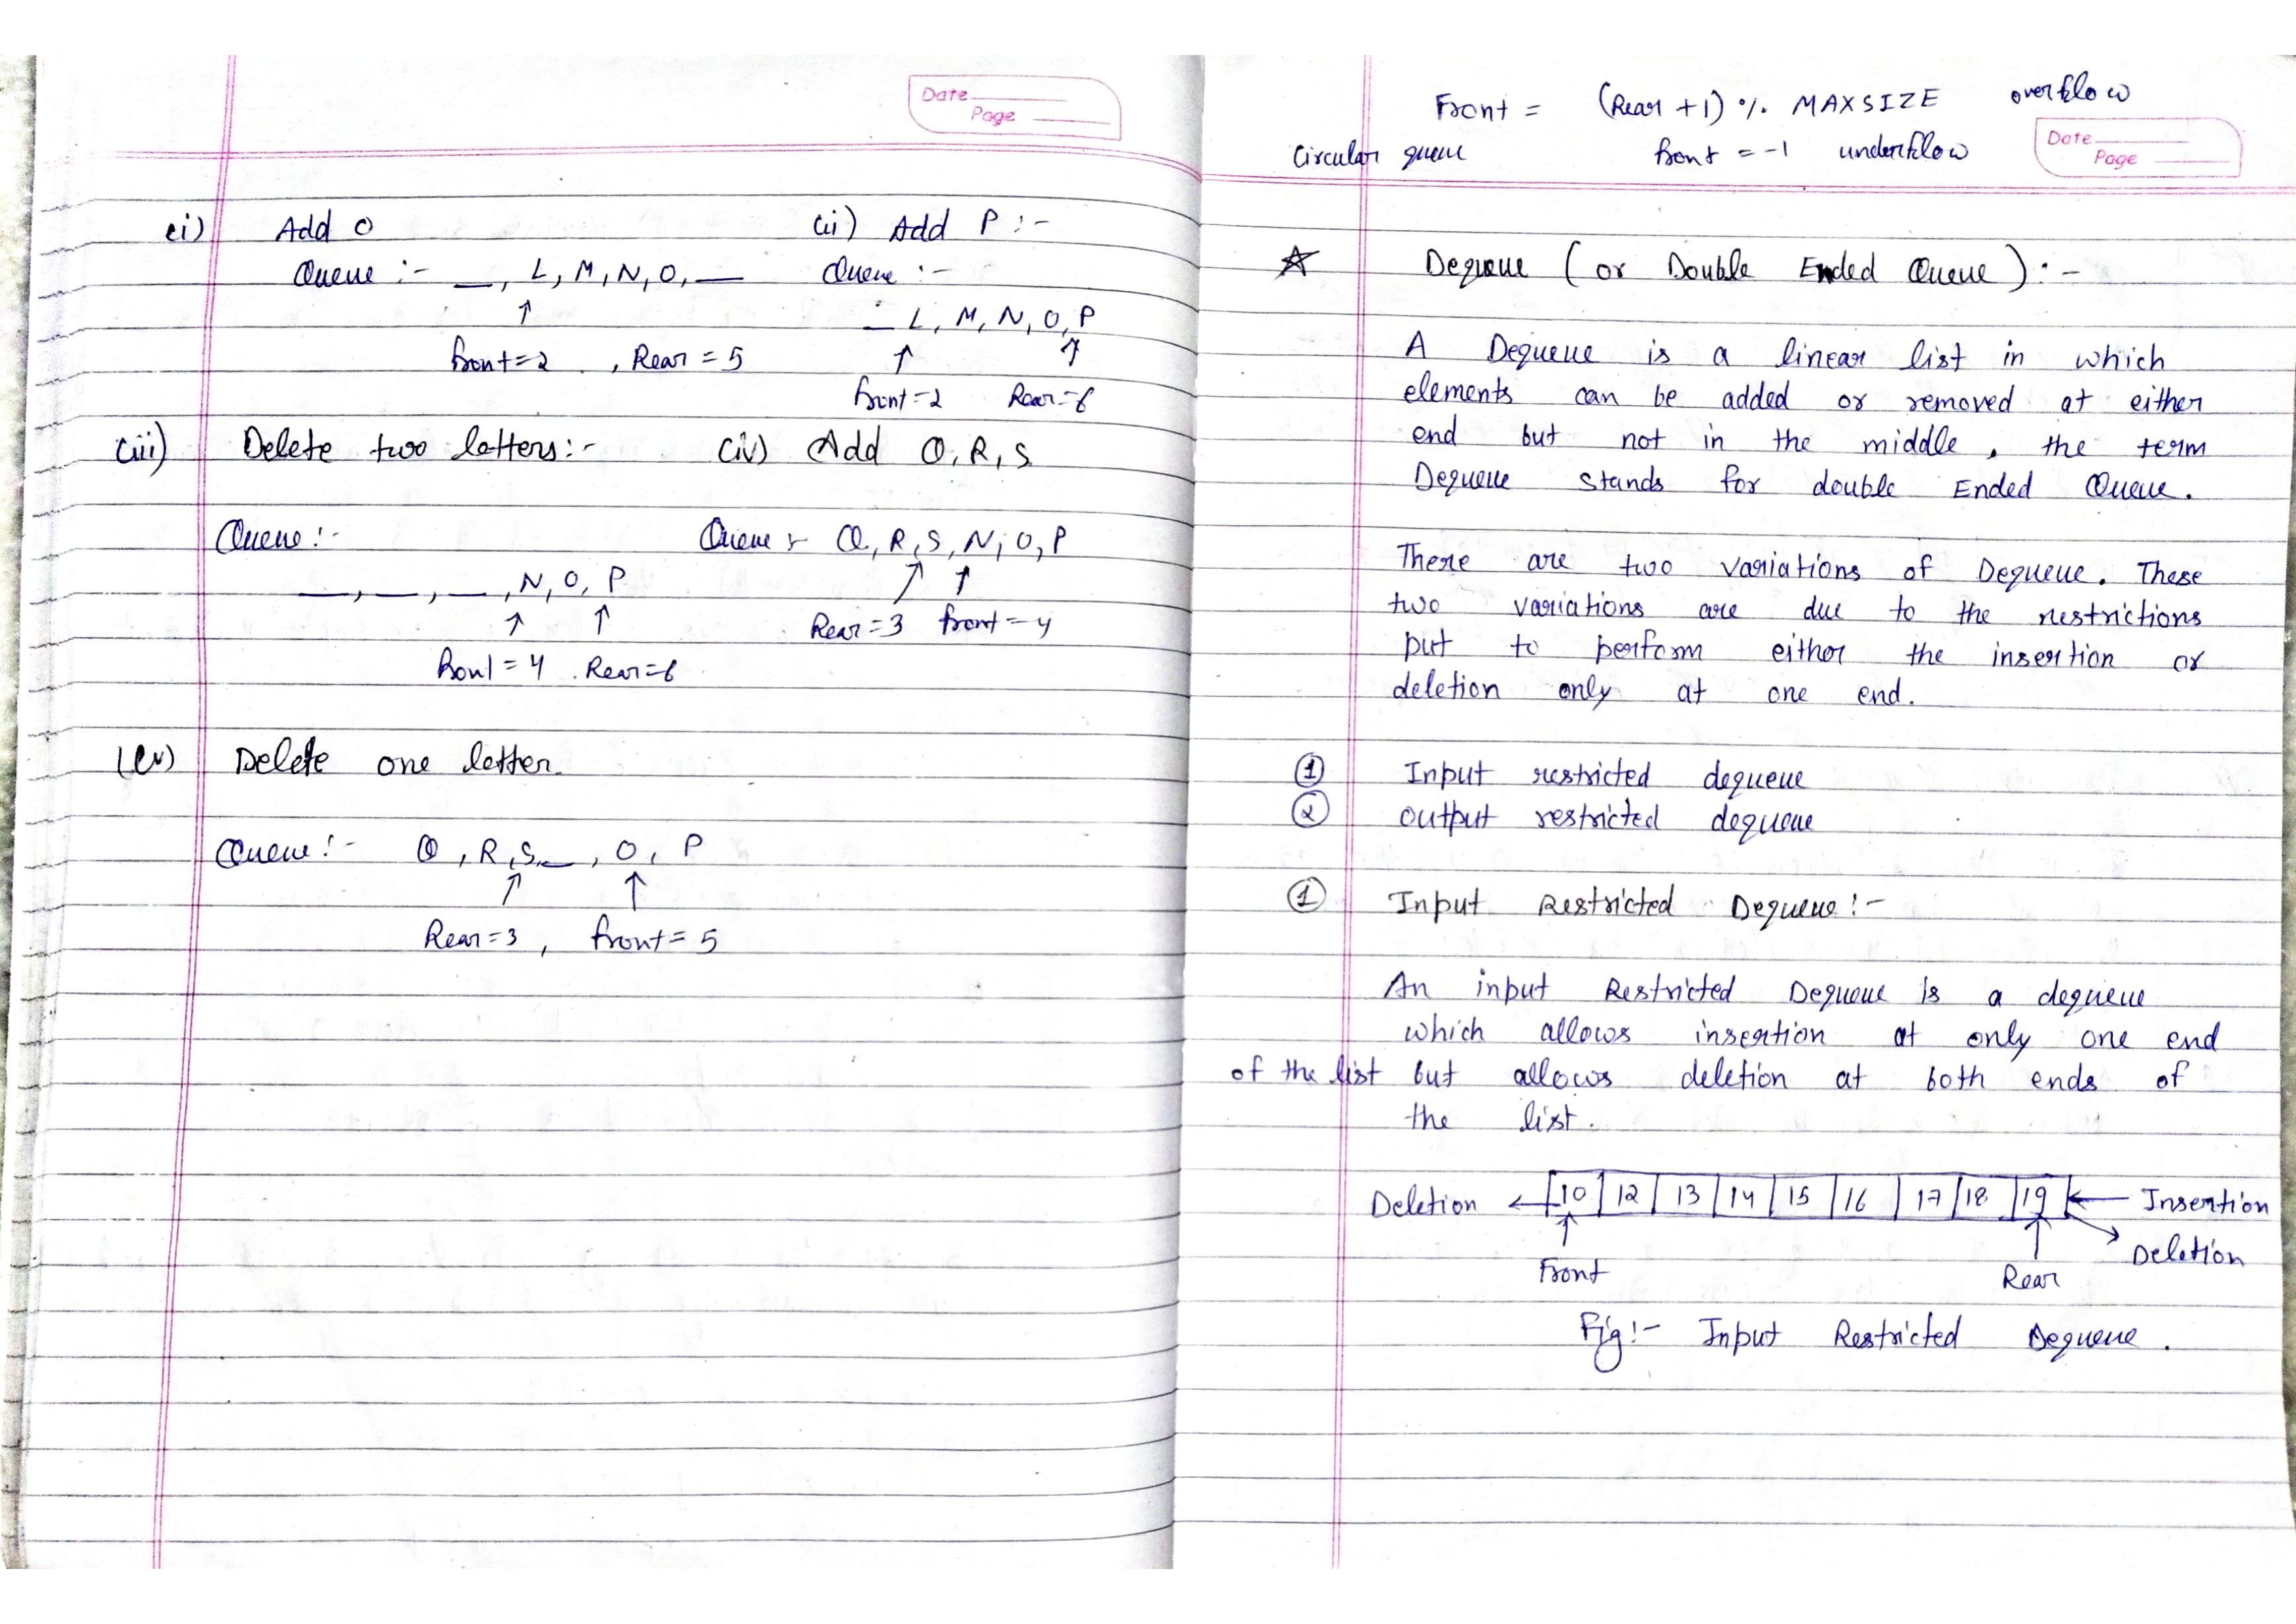 Date
Page
(i) Add O
Queue :- __, L, M, N, O, __
↑
front=2 , Rear = 5
(ii) Add P :-
Queue :-
_ L, M, N, O, P
↑ ↑
front=2 Rear=6
(iii) Delete two letters:-
Queue :-
__, __, __, N, O, P
↑ ↑
front = 4 . Rear=6
(iv) Add Q, R, S
Queue :- Q, R, S, N, O, P
↑ ↑
Rear=3 front=4
(v) Delete one letter.
Queue :- Q, R, S, __, O, P
↑ ↑
Rear=3 , front= 5
Front = (Rear +1) % MAXSIZE overflow
Circular queue front = -1 underflow
Date
Page
☆ Dequeue ( or Double Ended Queue ) : -
A Dequeue is a linear list in which
elements can be added or removed at either
end but not in the middle, the term
Dequeue stands for double Ended Queue.
There are two variations of Dequeue. These
two variations are due to the restrictions
put to perform either the insertion or
deletion only at one end.
① Input restricted dequeue
② output restricted dequeue
① Input Restricted Dequeue :-
An input Restricted Dequeue is a dequeue
which allows insertion at only one end
of the list but allows deletion at both ends of
the list.
Deletion ← 10 12 13 14 15 16 17 18 19 ← Insertion
Deletion
↑ ↑
Front Rear
Fig:- Input Restricted Dequeue.